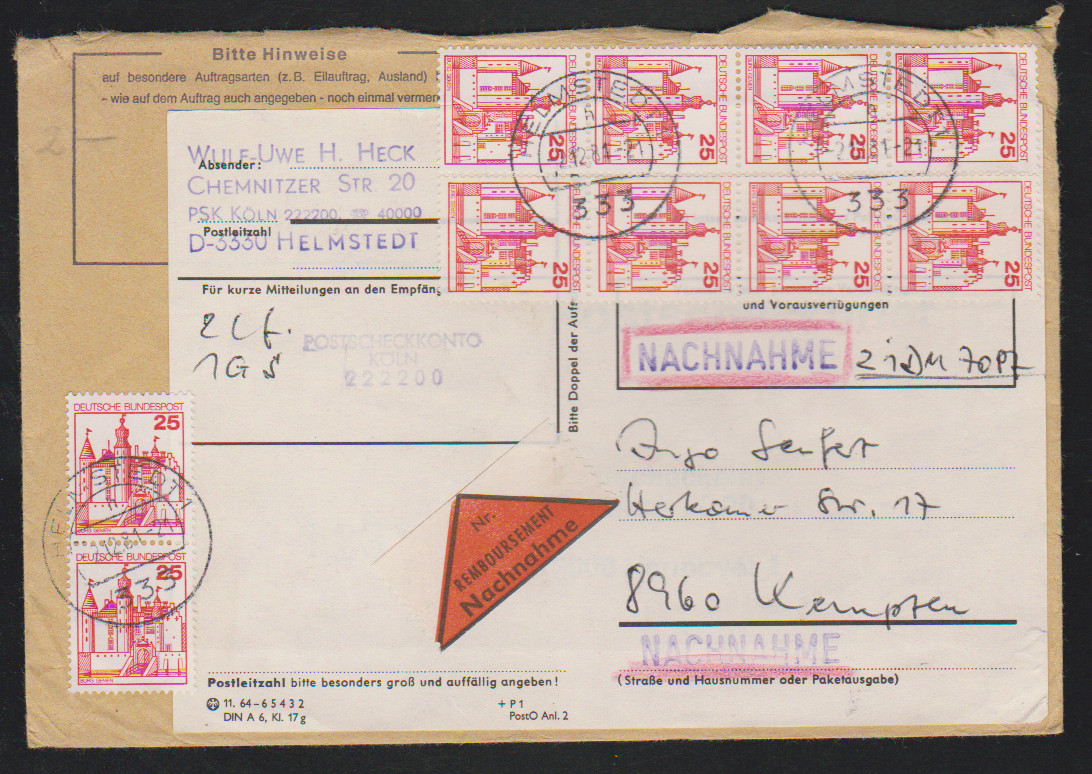 Bitte Hinweise
auf besondere Auftragsarten (z.B. Eilauftrag, Ausland)
- wie auf dem Auftrag auch angegeben - noch einmal
DEUTSCHE BUNDESPOST 25
DEUTSCHE BUNDESPOST 25
DEUTSCHE BUNDESPOST 25
DEUTSCHE BUNDESPOST 25
DEUTSCHE BUNDESPOST 25
DEUTSCHE BUNDESPOST 25
DEUTSCHE BUNDESPOST 25
DEUTSCHE BUNDESPOST 25
333
333
Absender:
H. HECK
CHEMNITZER STR 20
PSK KÖLN 222200, 40000
Postleitzahl
D-3330 HELMSTEDT
Für kurze Mitteilungen an den
POSTSCHECKKONTO
KÖLN
222200
Bitte Doppel der
und Vorausverfügungen
NACHNAHME
70 Pf
Herkomer Str. 17
8960 Kempten
NACHNAHME
(Straße und Hausnummer oder Paketausgabe)
Nr.
REMBOURSEMENT
Nachnahme
DEUTSCHE BUNDESPOST
25
BURG GEMEN
HELMSTEDT 1
333
DEUTSCHE BUNDESPOST
25
BURG GEMEN
Postleitzahl bitte besonders groß und auffällig angeben!
11. 64-6 5 4 3 2
DIN A 6, Kl. 17 g
+ P 1
PostO Anl. 2